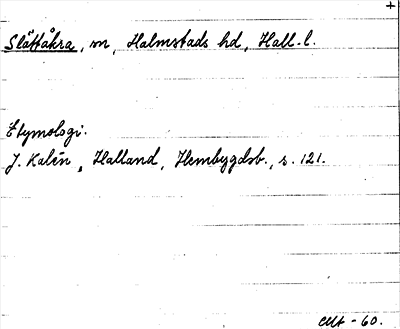 +
Slättåkra, sn, Halmstads hd, Hall. l.
Etymologi.
J. Kalén, Halland, Hembygdsb., s. 121.
-60.